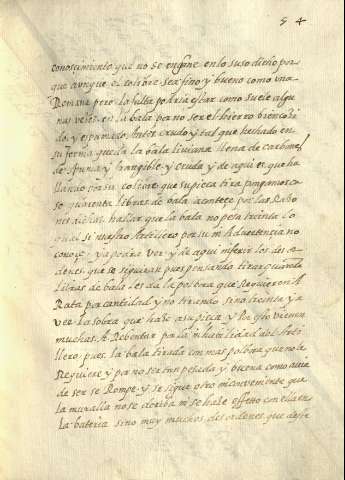 54
conoscimiento que no se engañe en lo suso dicho por
que aunque el colibre sea fino y bueno como una
Romana pero la falta podria estar como suele algu
nas veces en la bala por no ser el hierro bien cozi
do, y espumado, Antes crudo y tal que hechado en
su forma queda la bala liviana llena de
de spunia y frangible y cruda y de aqui es que ha
llando por su colibre que su pieça tira
se quarenta libras de bala acontece por las Razo
nes dichas, hallar que la bala no pesa treinta lo
qual si nuestro Artillero por su inAduertencia no
conoce ya podra ver y de aqui inferir los desor
denes que se seguiran pues pensando tirar quarenta
libras de bala les da la poluora que Requieren A
Rata por cantidad y no tirando sino treinta ya
ver la sobra que haze a su pieça y por esto vienen
muchas A Rebentar por la del Arti
llero pues la bala tirada con mas poluora que no le
Requiere y por no ser tan pesada y buena como auia
de ser se Rompe y se sigue otro inconveniente que
la muralla no se deriba ni se haze effetto con ella en
la bateria sino muy muchos desordenes que desse